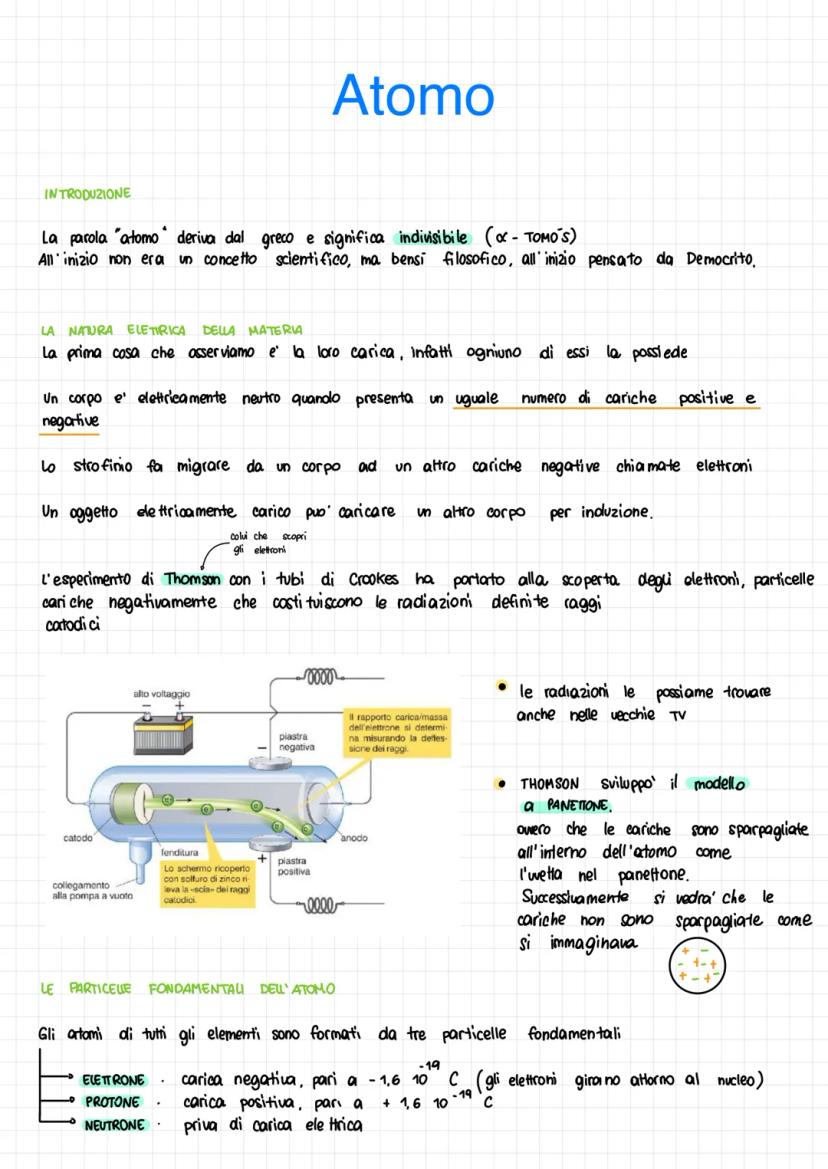 Atomo
INTRODUZIONE
La parola "atomo" deriva dal greco e significa indivisibile (α - TOMO'S)
All'inizio non era un concetto scientifico, ma bensì filosofico, all'inizio pensato da Democrito.
LA NATURA ELETTRICA DELLA MATERIA
La prima cosa che osserviamo e' la loro carica, infatti ogniuno di essi la possiede
Un corpo e' elettricamente neutro quando presenta un uguale numero di cariche positive e
negative
Lo strofinio fa migrare da un corpo ad un altro cariche negative chiamate elettroni
Un oggetto elettricamente carico puo' caricare un altro corpo per induzione.
colui che scoprì
gli elettroni
L'esperimento di Thomson con i tubi di Crookes ha portato alla scoperta degli elettroni, particelle
cariche negativamente che costituiscono le radiazioni definite raggi
catodici
alto voltaggio
− +
piastra
negativa
−
Il rapporto carica/massa
dell'elettrone si determi-
na misurando la defles-
sione dei raggi.
e e e e e
catodo
fenditura
anodo
+
piastra
positiva
Lo schermo ricoperto
con solfuro di zinco ri-
leva la «scia» dei raggi
catodici.
collegamento
alla pompa a vuoto
• le radiazioni le possiame trovare
anche nelle vecchie TV
• THOMSON sviluppo' il modello
a PANETTONE.
ovvero che le cariche sono sparpagliate
all'interno dell'atomo come
l'uvetta nel panettone.
Successivamente si vedra' che le
cariche non sono sparpagliate come
si immaginava
+ −
− + −
+ − +
LE PARTICELLE FONDAMENTALI DELL'ATOMO
Gli atomi di tutti gli elementi sono formati da tre particelle fondamentali
ELETTRONE · carica negativa, pari a - 1,6 10⁻¹⁹ C (gli elettroni girano attorno al nucleo)
PROTONE · carica positiva, pari a + 1,6 10⁻¹⁹ C
NEUTRONE · priva di carica elettrica